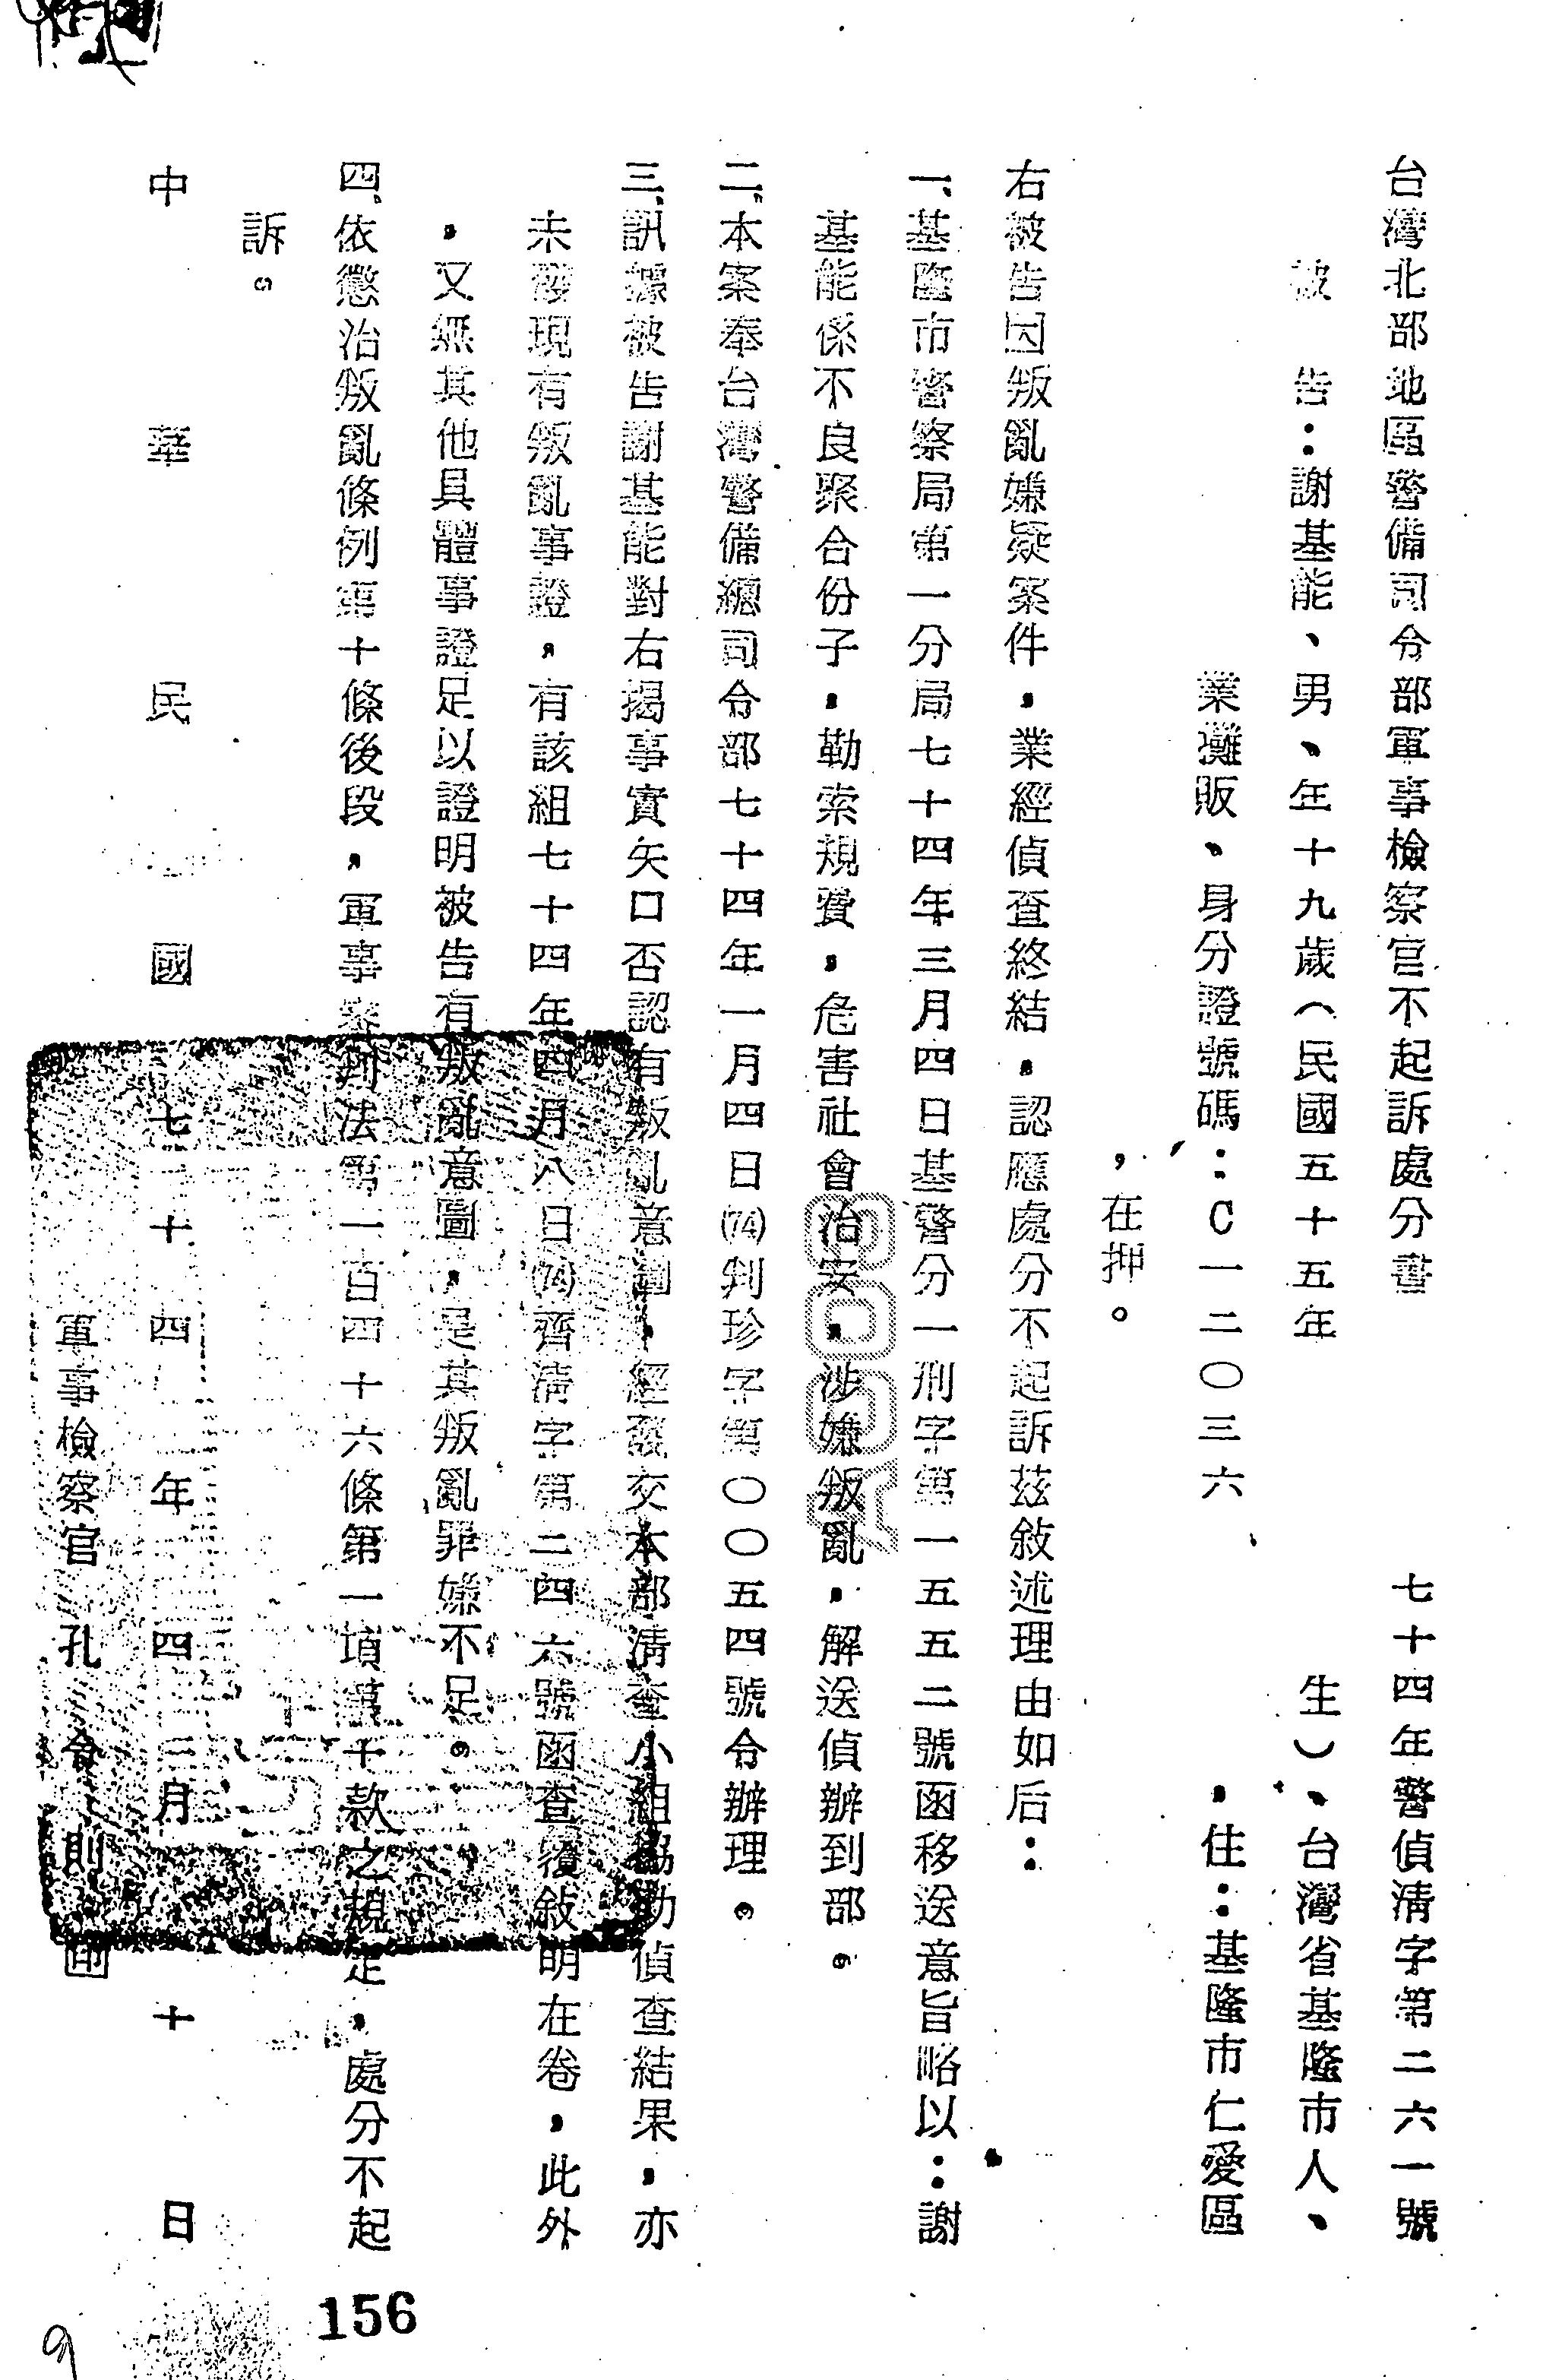 台灣北部地區警備司令部軍事檢察官不起訴處分書
七十四年警偵清字第二六一號
被告：謝基能、男、年十九歲（民國五十五年
生）、台灣省基隆市人、
業攤販、身分證號碼：C一二〇三六
，住：基隆市仁愛區
，在押。
右被告因叛亂嫌疑案件，業經偵查終結，認應處分不起訴茲敘述理由如后：
一、基隆市警察局第一分局七十四年三月四日基警分一刑字第一五五二號函移送意旨略以：謝
基能係不良聚合份子，勒索規費，危害社會治安，涉嫌叛亂，解送偵辦到部。
二、本案奉台灣警備總司令部七十四年一月四日(74)判珍字第〇〇五四號令辦理。
三、訊據被告謝基能對右揭事實矢口否認有叛亂意圖，經發交本部清查小組協助偵查結果，亦
未發現有叛亂事證，有該組七十四年四月八日(74)齊清字第二四六號函查復敘明在卷，此外
，又無其他具體事證足以證明被告有叛亂意圖，是其叛亂罪嫌不足。
四、依懲治叛亂條例第十條後段，軍事審判法第一百四十六條第一項第十款之規定，處分不起
訴。
中華民國七十四年四月十日
軍事檢察官 孔令則 印
156